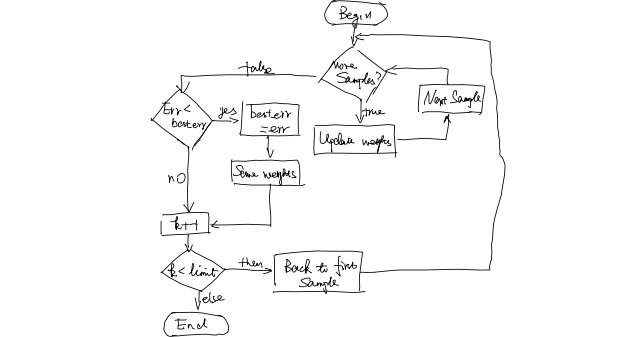 Begin
more
Samples?
false
true
Next Sample
Update weights
Err <
besterr
yes
besterr
= err
Save weights
no
k++
k < limit
then
Back to first
Sample
else
End